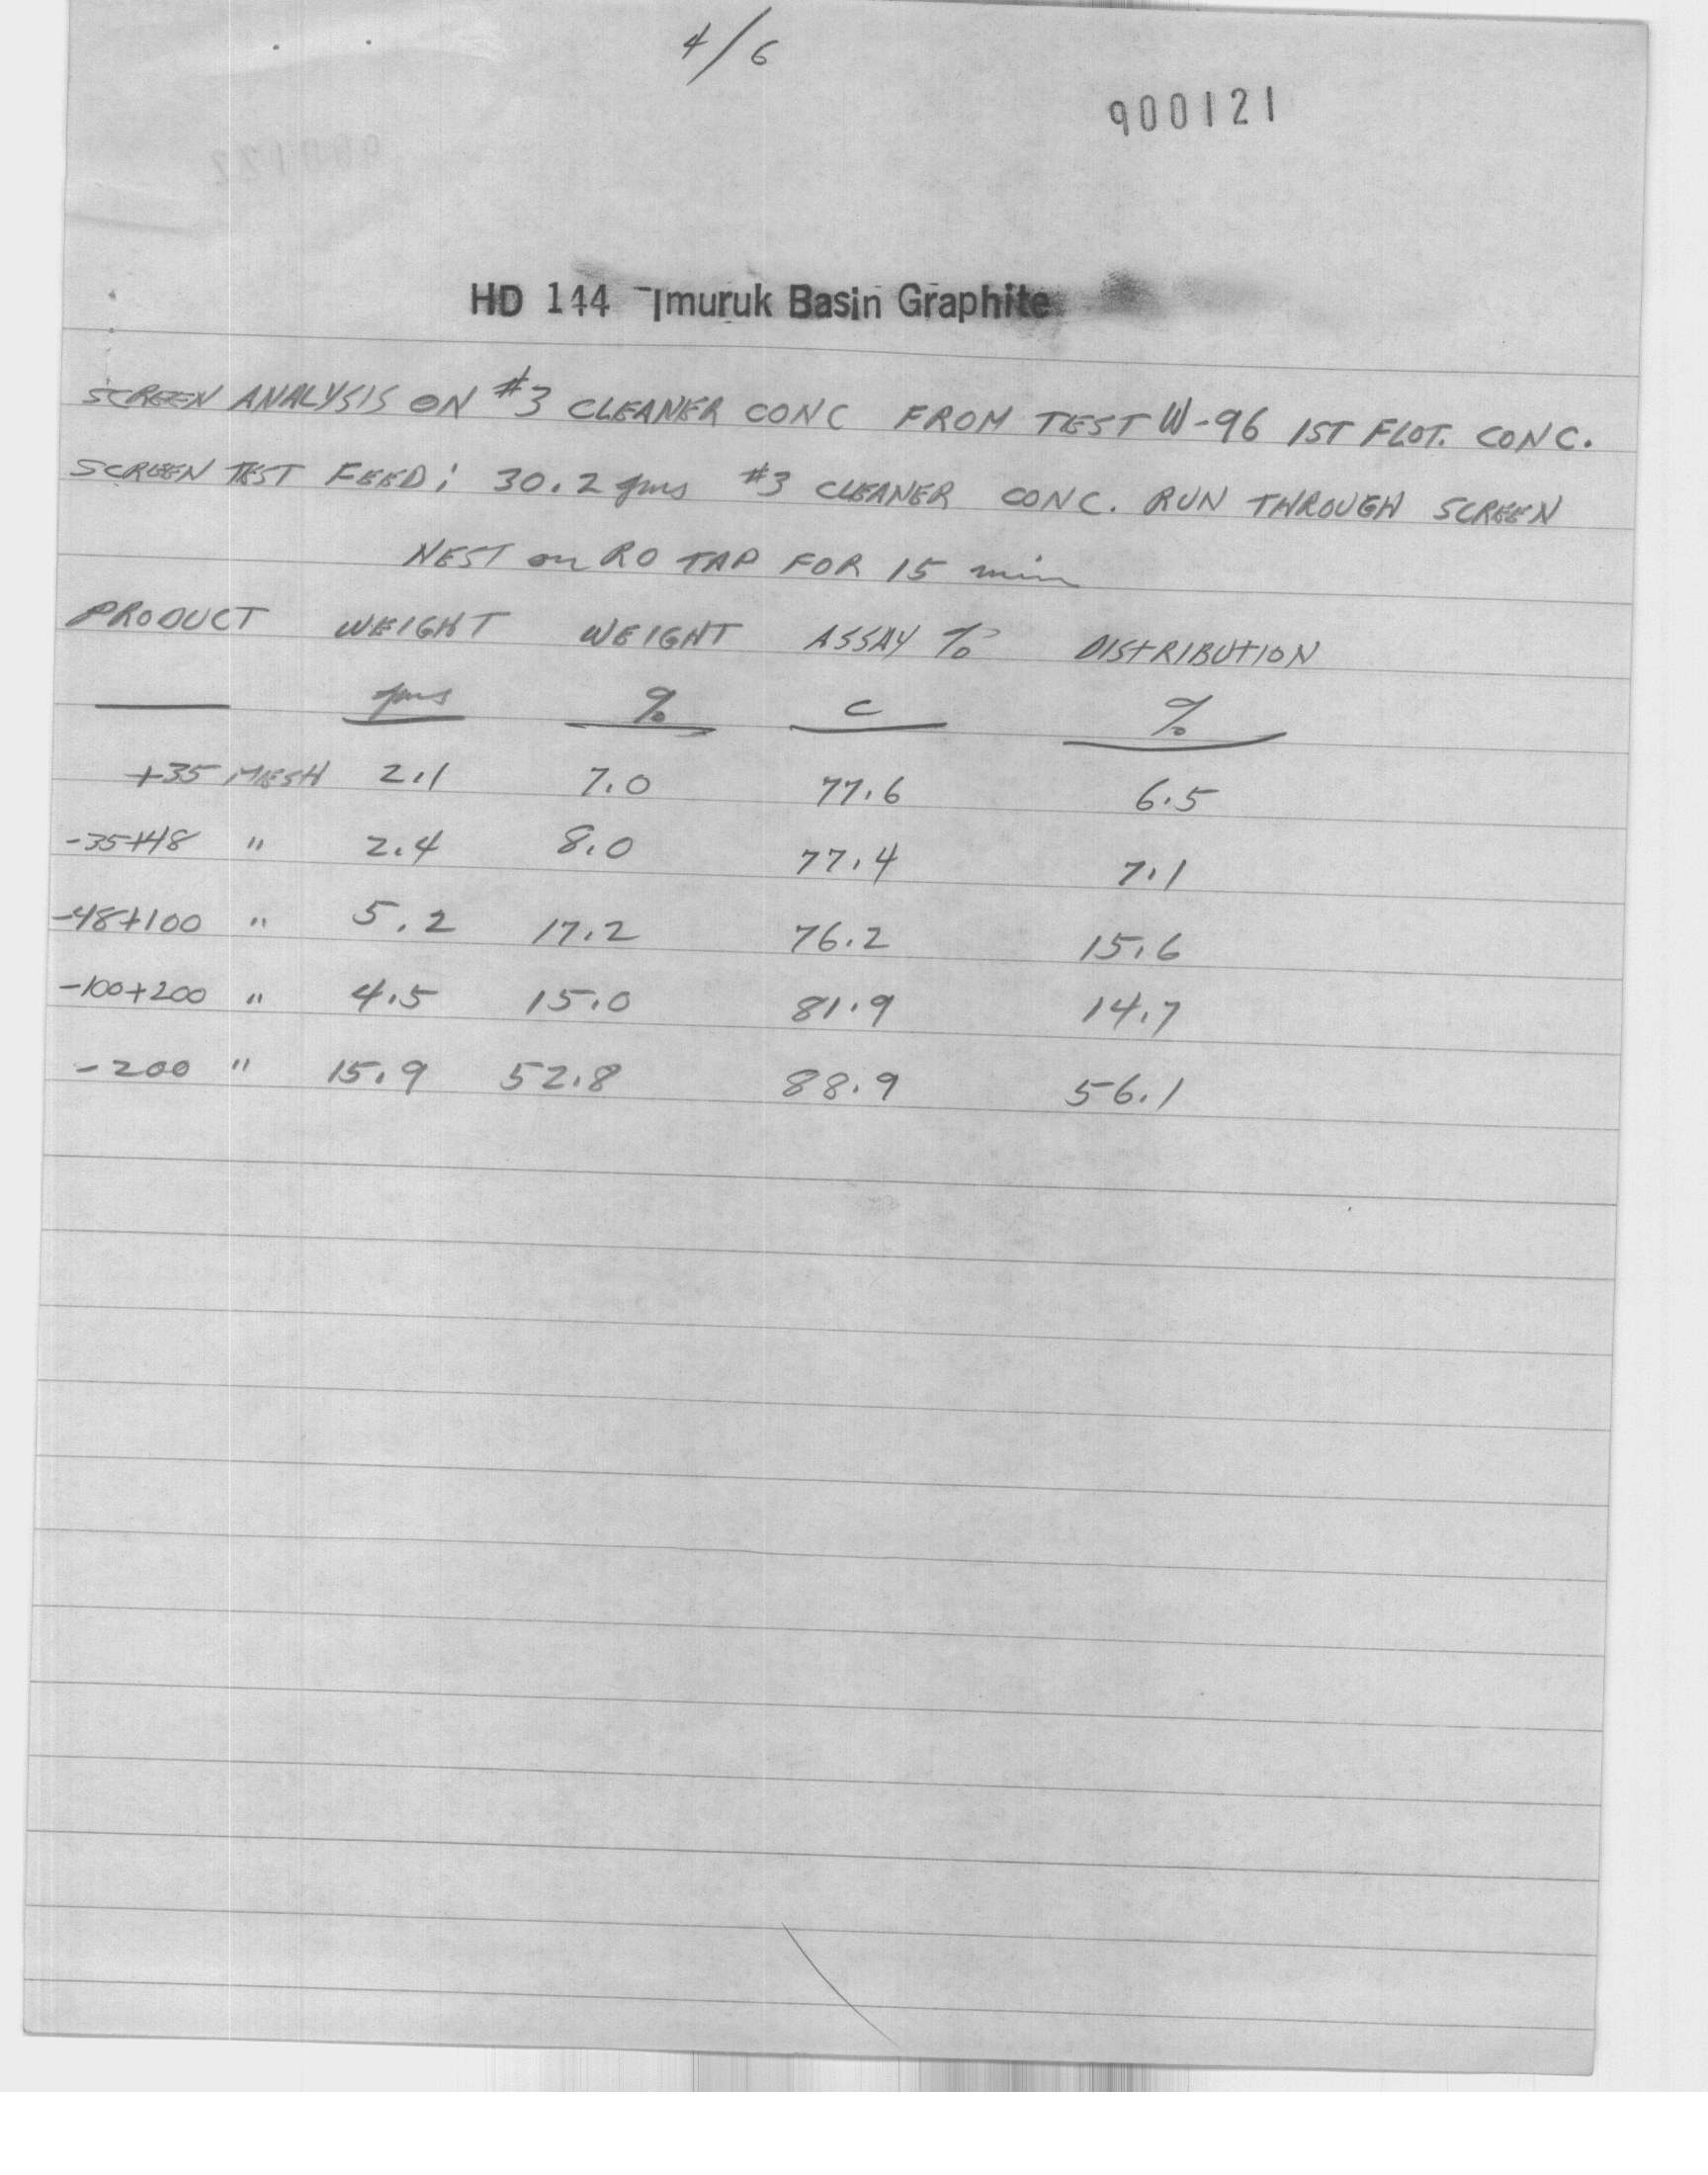 4/6
900121
HD 144 Imuruk Basin Graphite
SCREEN ANALYSIS ON #3 CLEANER CONC FROM TEST W-96 1ST FLOT. CONC.
SCREEN TEST FEED: 30.2 gms #3 CLEANER CONC. RUN THROUGH SCREEN
NEST on RO TAP FOR 15 min
PRODUCT WEIGHT WEIGHT ASSAY % DISTRIBUTION
gms % C %
+35 MESH 2.1 7.0 77.6 6.5
-35+48 " 2.4 8.0 77.4 7.1
-48+100 " 5.2 17.2 76.2 15.6
-100+200 " 4.5 15.0 81.9 14.7
-200 " 15.9 52.8 88.9 56.1